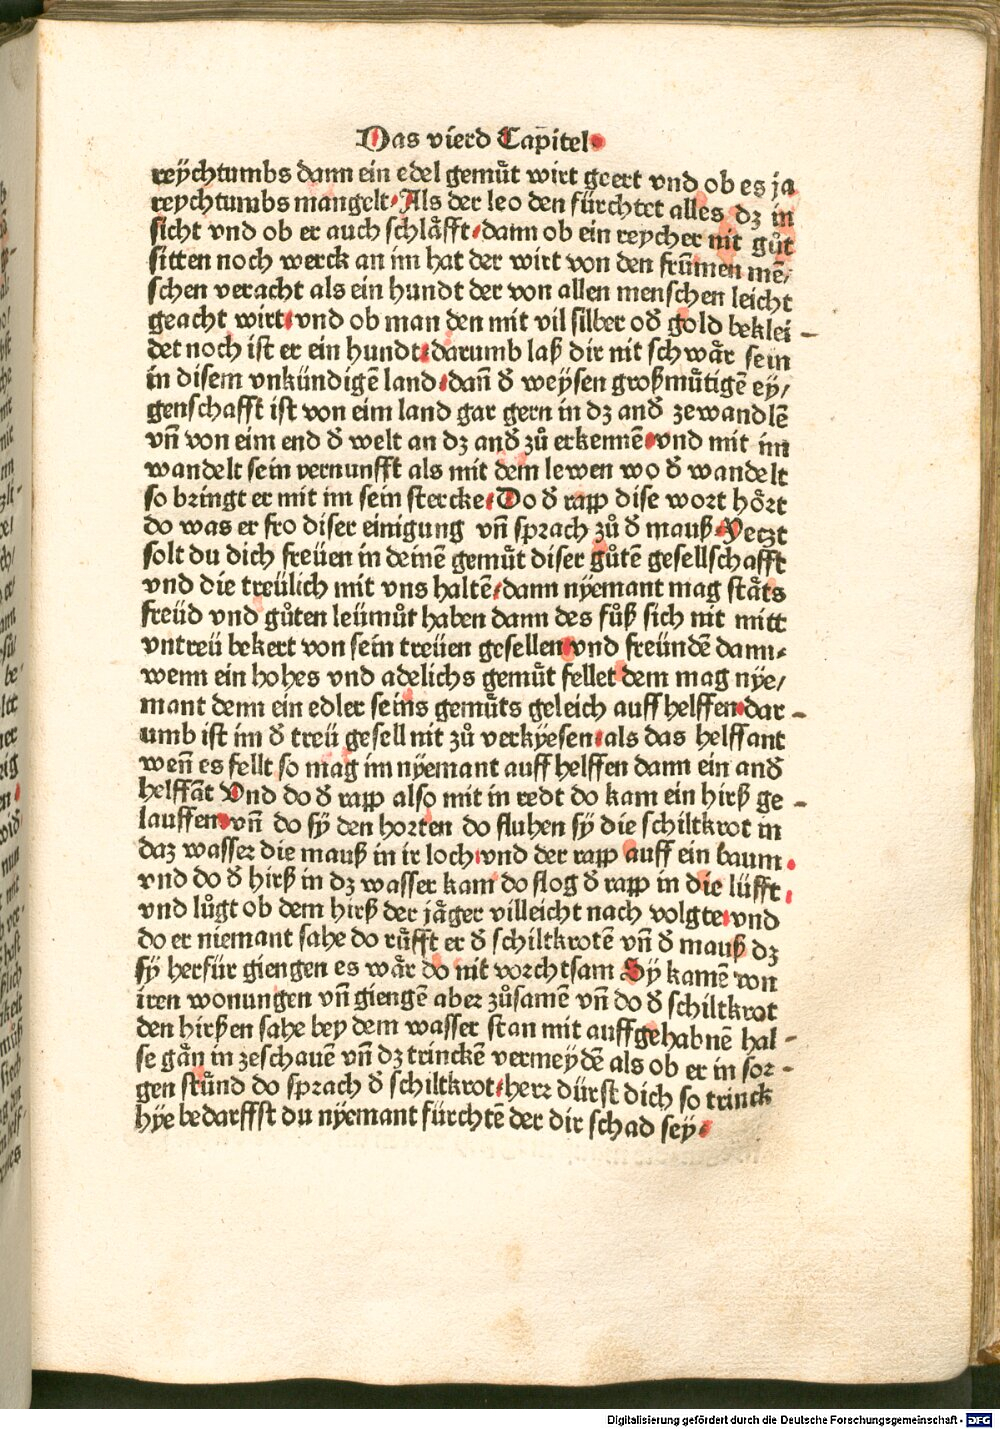 Das vierd Capitel.
reÿchtumbs dann ein edel gemuͤt wirt geert vnd ob es ja
reychtumbs mangelt. Als der leo den fürchtet alles dz in
sicht vnd ob er auch schlaͤfft. dann ob ein reycher nit guͦt
sitten noch werck an im hat der wirt von den frūmen mē/
schen veracht als ein hundt der von allen menschen leicht
geacht wirt. vnd ob man den mit vil silber od̕ gold beklei-
det noch ist er ein hundt. darumb laß dir nit schwaͤr sein
in disem vnkündigē land. dañ d̕ weysen großmuͤtigē ey/
genschafft ist von eim land gar gern in dz and̕ zewandlē
vñ von eim end d̕ welt an dz and̕ zuͦ erkennē. vnd mit im
wandelt sein vernunfft als mit dem lewen wo d̕ wandelt
so bringt er mit im sein stercke. Do d̕ rapp dise wort hoͤrt
do was er fro diser einigung vñ sprach zuͦ d̕ mauß. Yetzt
solt du dich freüen in deinē gemuͤt diser guͦtē gesellschafft
vnd die treülich mit vns haltē. dann nÿemant mag staͤts
freüd vnd guͦten leümuͦt haben dann des fuͦß sich nit mitt
vntreü bekert von sein treüen gesellen. vnd freündē dann.
wenn ein hohes vnd adelichs gemuͤt fellet dem mag nÿe/
mant denn ein edler seins gemuͤts geleich auff helffen. dar-
umb ist im d̕ treü gesell nit zuͦ verkÿesen. als das helffant
weñ es fellt so mag im nÿemant auff helffen dann ein and̕
helffāt Vnd do d̕ rapp also mit in redt do kam ein hirß ge-
lauffen. vñ do sÿ den horten do fluhen sÿ die schiltkrot in
daz wasser die mauß in ir loch. vnd der rapp auff ein baum.
vnd do d̕ hirß in dz wasser kam do flog d̕ rapp in die lüfft.
vnd luͦgt ob dem hirß der jaͤger villeicht nach volgte. vnd
do er niemant sahe do ruͤfft er d̕ schiltkrotē vñ d̕ mauß dz
sÿ herfür giengen es waͤr do nit vorchtsam Sÿ kamē von
iren wonungen vñ giengē aber zuͦsamē vñ do d̕ schiltkrot
den hirßen sahe bey dem wasser stan mit auffgehabnē hal-
se gaͤn in zeschauē vñ dz trinckē vermeydē als ob er in sor-
gen stuͤnd do sprach d̕ schiltkrot. herr dürst dich so trinck
hÿe bedarffst du nÿemant fürchtē der dir schad seÿ.
Digitalisierung gefördert durch die Deutsche Forschungsgemeinschaft - DFG